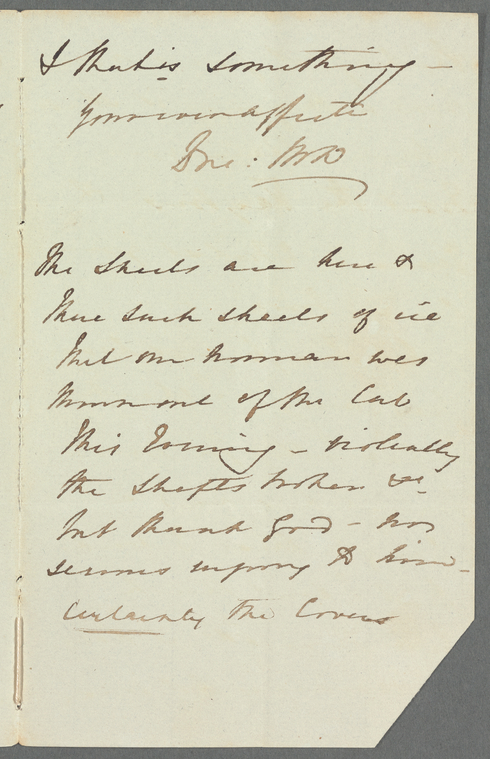 & that is something -
Yours ever affecte

The sheets are here &
there such sheets of ice
that our Norman was
thrown out of the Cab
this Evening - violently
the shafts broken &c.
but thank God - no
serious injury to him -
Certainly the Covers